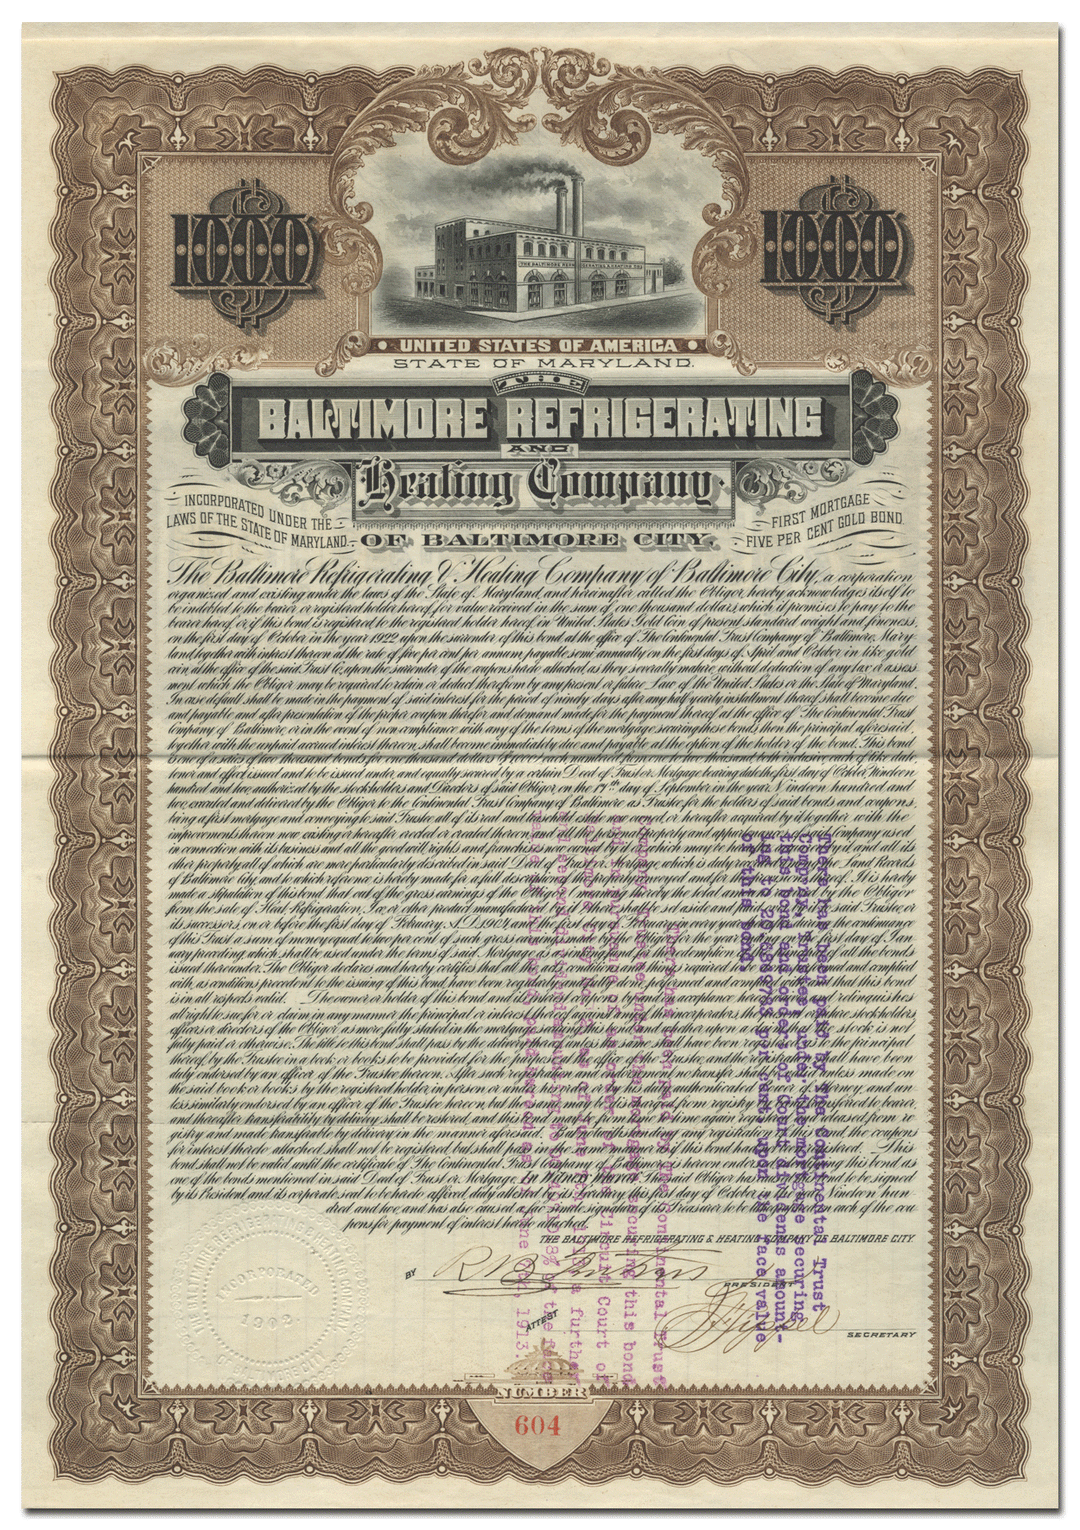 1000
1000
THE BALTIMORE REFRIGERATING & HEATING CO.
UNITED STATES OF AMERICA
STATE OF MARYLAND.
THE
BALTIMORE REFRIGERATING
AND
Heating Company
OF BALTIMORE CITY.
INCORPORATED UNDER THE
LAWS OF THE STATE OF MARYLAND.
FIRST MORTGAGE
FIVE PER CENT GOLD BOND.
The Baltimore Refrigerating & Heating Company of Baltimore City, a corporation
organized and existing under the laws of the State of Maryland, and hereinafter called the Obligor, hereby acknowledges itself to
be indebted to the bearer or registered holder hereof, for value received in the sum of one thousand dollars, which it promises to pay to the
bearer hereof, or if this bond is registered to the registered holder hereof, in United States Gold Coin of present standard weight and fineness,
on the first day of October in the year 1922 upon the surrender of this bond at the office of The Continental Trust Company of Baltimore, Mary-
land, together with interest thereon at the rate of five per cent per annum, payable semi annually on the first days of April and October in like gold
coin, at the office of the said Trust Co. upon the surrender of the coupons hereto attached as they severally mature, without deduction of any tax or assess-
ment which the Obligor may be required to retain or deduct therefrom by any present or future Law of the United States or the State of Maryland.
In case default shall be made in the payment of said interest for the period of ninety days after any half yearly installment thereof shall become due
and payable and after presentation of the proper coupon therefor and demand made for the payment thereof at the office of The Continental Trust
Company of Baltimore, or in the event of non compliance with any of the terms of the mortgage securing these bonds, then the principal aforesaid,
together with the unpaid accrued interest thereon, shall become immediately due and payable at the option of the holder of the bond. This bond
is one of a series of two thousand bonds for one thousand dollars each, numbered from one to two thousand, both inclusive, each of like date,
tenor and effect issued and to be issued under, and equally secured by a certain Deed of Trust or Mortgage bearing date the first day of October, Nineteen
hundred and two, authorized by the stockholders and Directors of said Obligor, on the 17th day of September in the year Nineteen hundred and
two, executed and delivered by the Obligor to the Continental Trust Company of Baltimore as Trustee, for the holders of said bonds and coupons,
being a first mortgage and conveying to said Trustee all of its real and leasehold estate now owned or hereafter acquired by it together with the
improvements thereon now existing or hereafter erected or created thereon, and all the personal property and of said Company used
in connection with its business and all the good will, rights and franchises now owned by it or which may be hereafter by it and all its
other property, all of which are more particularly described in said Deed of Trust or Mortgage which is duly recorded among the Land Records
of Baltimore City, and to which reference is hereby made for a full description of the property conveyed and for the provisions thereof. It is hereby
made a stipulation of this bond that out of the gross earnings of the Obligor, meaning thereby the total amount by the Obligor
from the sale of Heat, Refrigeration, Ice, or other product manufactured by it, there shall be set aside and paid over by it to said Trustee, or
its successors, on or before the first day of February, A.D. 1904 and the first day of February in every year during the continuance
of this Trust a sum of money equal to two per cent of such gross earnings made by the Obligor for the year ending on the first day of Jan-
uary preceding, which shall be used under the terms of said Mortgage as a sinking fund for the redemption and payment of all the bonds
issued thereunder. The Obligor declares and hereby certifies that all the acts, conditions and things required to be done and complied
with, as conditions precedent to the issuing of this bond, have been regularly and fully done, performed and complied with and that this bond
is in all respects valid. The owner or holder of this bond and its interest coupons, by and in acceptance hereof and relinquishes
all right to sue for or claim in any manner the principal or interest thereof against any of the incorporators, the present or future stockholders
officers or directors of the Obligor as more fully stated in the mortgage securing this bond, and whether upon a claim that the stock is not
fully paid or otherwise. The title to this bond shall pass by the delivery thereof, unless the same shall have been registered as to the principal
thereof, by the Trustee in a book or books to be provided for the purpose at the office of the Trustee, and the registration shall have been
duly endorsed by an officer of the Trustee hereon. After such registration and endorsement no transfer shall be valid unless made on
the said book or books by the registered holder, in person or under his order, or by his duly authenticated power of attorney, and un-
less similarly endorsed by an officer of the Trustee hereon, but the same may be discharged from registry by being transferred to bearer,
and thereafter transferability by delivery shall be restored, and this bond may be from time to time again registered and released from re-
gistry and made transferable by delivery in the manner aforesaid. But notwithstanding any registration of this bond, the coupons
for interest thereto attached shall not be registered, but shall pass in the same manner as if this bond had not been registered. This
bond shall not be valid until the certificate of The Continental Trust Company of Baltimore, is hereon endorsed certifying this bond as
one of the bonds mentioned in said Deed of Trust or Mortgage. In Witness Whereof, The said Obligor has caused this bond to be signed
by its President and its corporate seal to be hereto affixed duly attested by its Secretary, this first day of October, in the year Nineteen hun-
dred and two, and has also caused a fac-simile signature of its Treasurer to be lithographed on each of the cou-
pons for payment of interest hereto attached.
THE BALTIMORE REFRIGERATING & HEATING COMPANY OF BALTIMORE CITY.
BY
PRESIDENT
ATTEST
SECRETARY
INCORPORATED
1902
NUMBER
604
There has been paid by The Continental Trust
Company, Trustee under the mortgage securing
this bond and orders of Court dividens amount-
ing to 20.1389763 per cent upon the face value
of this bond.
There has been paid by The Continental Trust
Company, Trustee under the mortgage securing this bond
and in pursuance of an order of the Circuit Court of
1913.